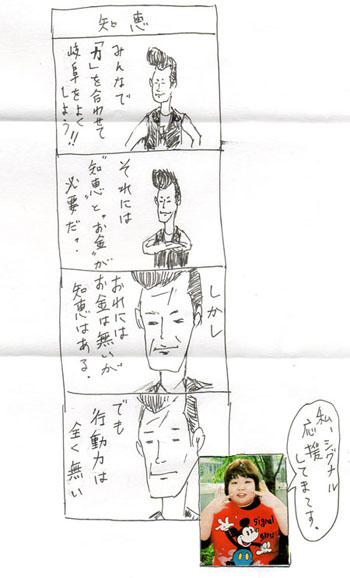 知恵
みんなで
「力」を合わせて
岐阜をよく
しよう!!
それには
"知恵"と"お金"が
必要だ。
しかし
おれには
お金は無いが
知恵はある。
でも
行動力は
全く無い
私、シグナル
応援
してまてす。
Signal